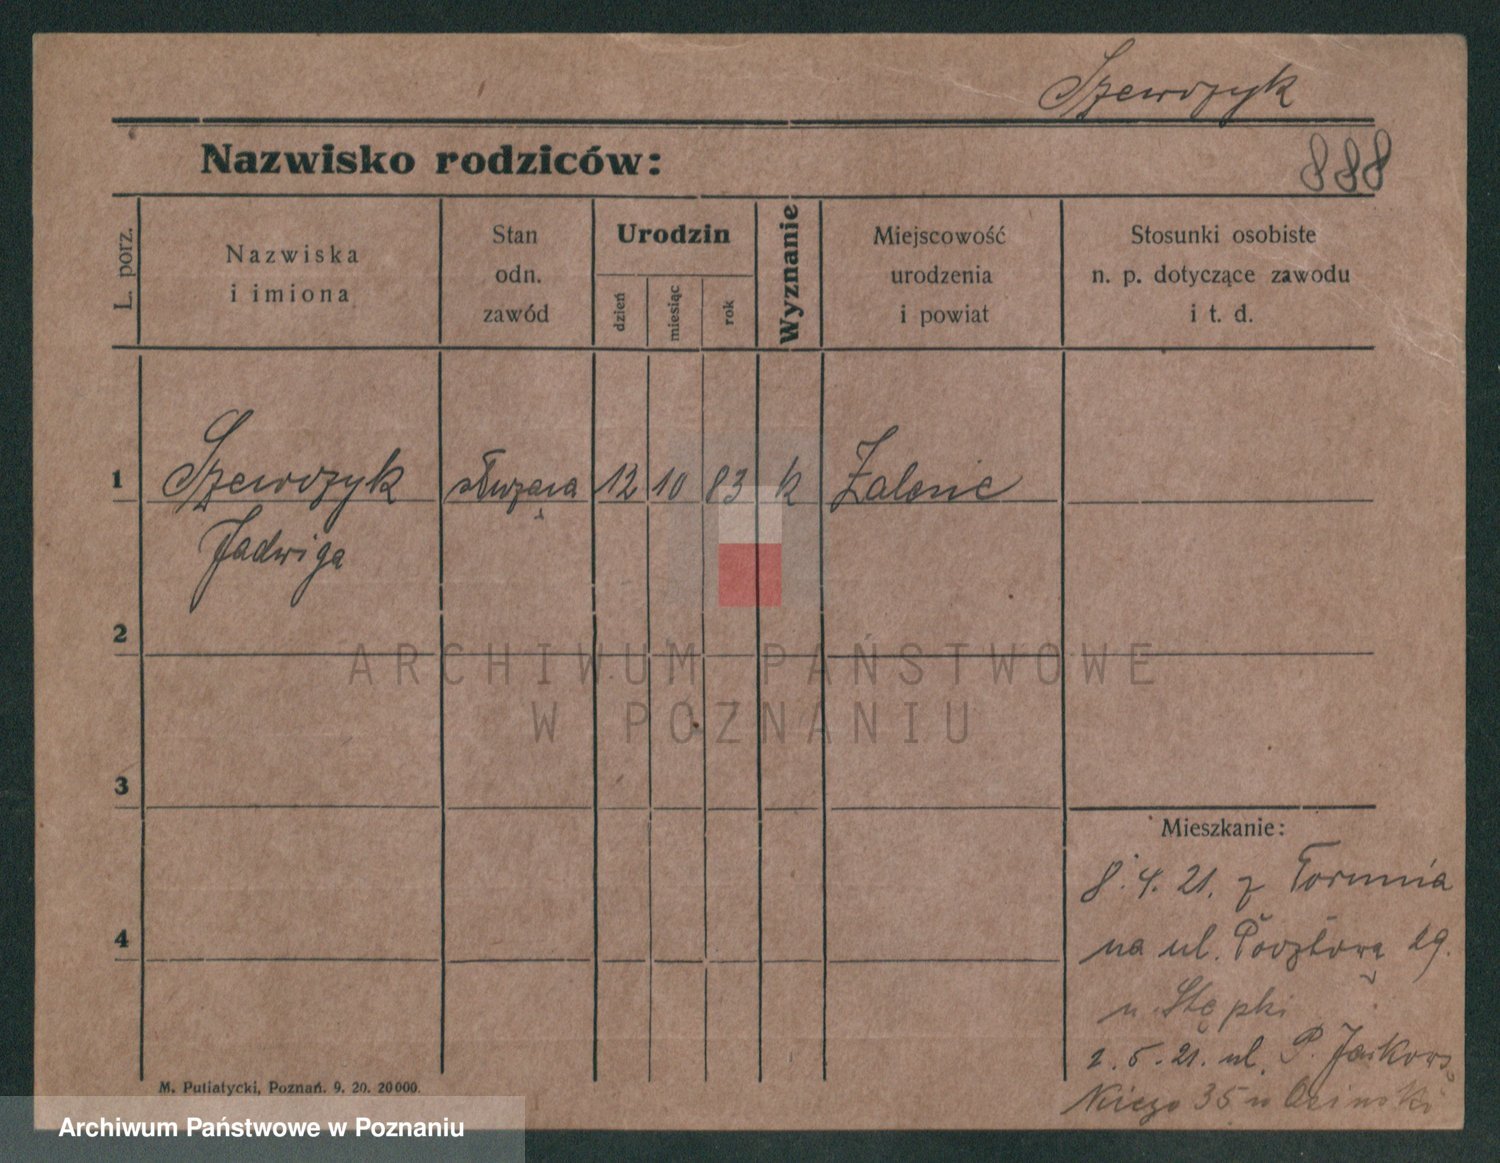 Szewczyk
Nazwisko rodziców:
888
L. porz.
Nazwiska
i imiona
Stan
odn.
zawód
Urodzin
dzień
miesiąc
rok
Wyznanie
Miejscowość
urodzenia
i powiat
Stosunki osobiste
n. p. dotyczące zawodu
i t. d.
1
Szewczyk
Jadwiga
służąca
12
10
83
k
Zalesie
2
ARCHIWUM PAŃSTWOWE
W POZNANIU
3
Mieszkanie:
8.4.21. z Torunia
4
na ul. Pocztową 29.
u Stępki
2.5.21. ul. P. Jackows
kiego 35 u
M. Putiatycki, Poznań. 9. 20. 20000.
Archiwum Państwowe w Poznaniu